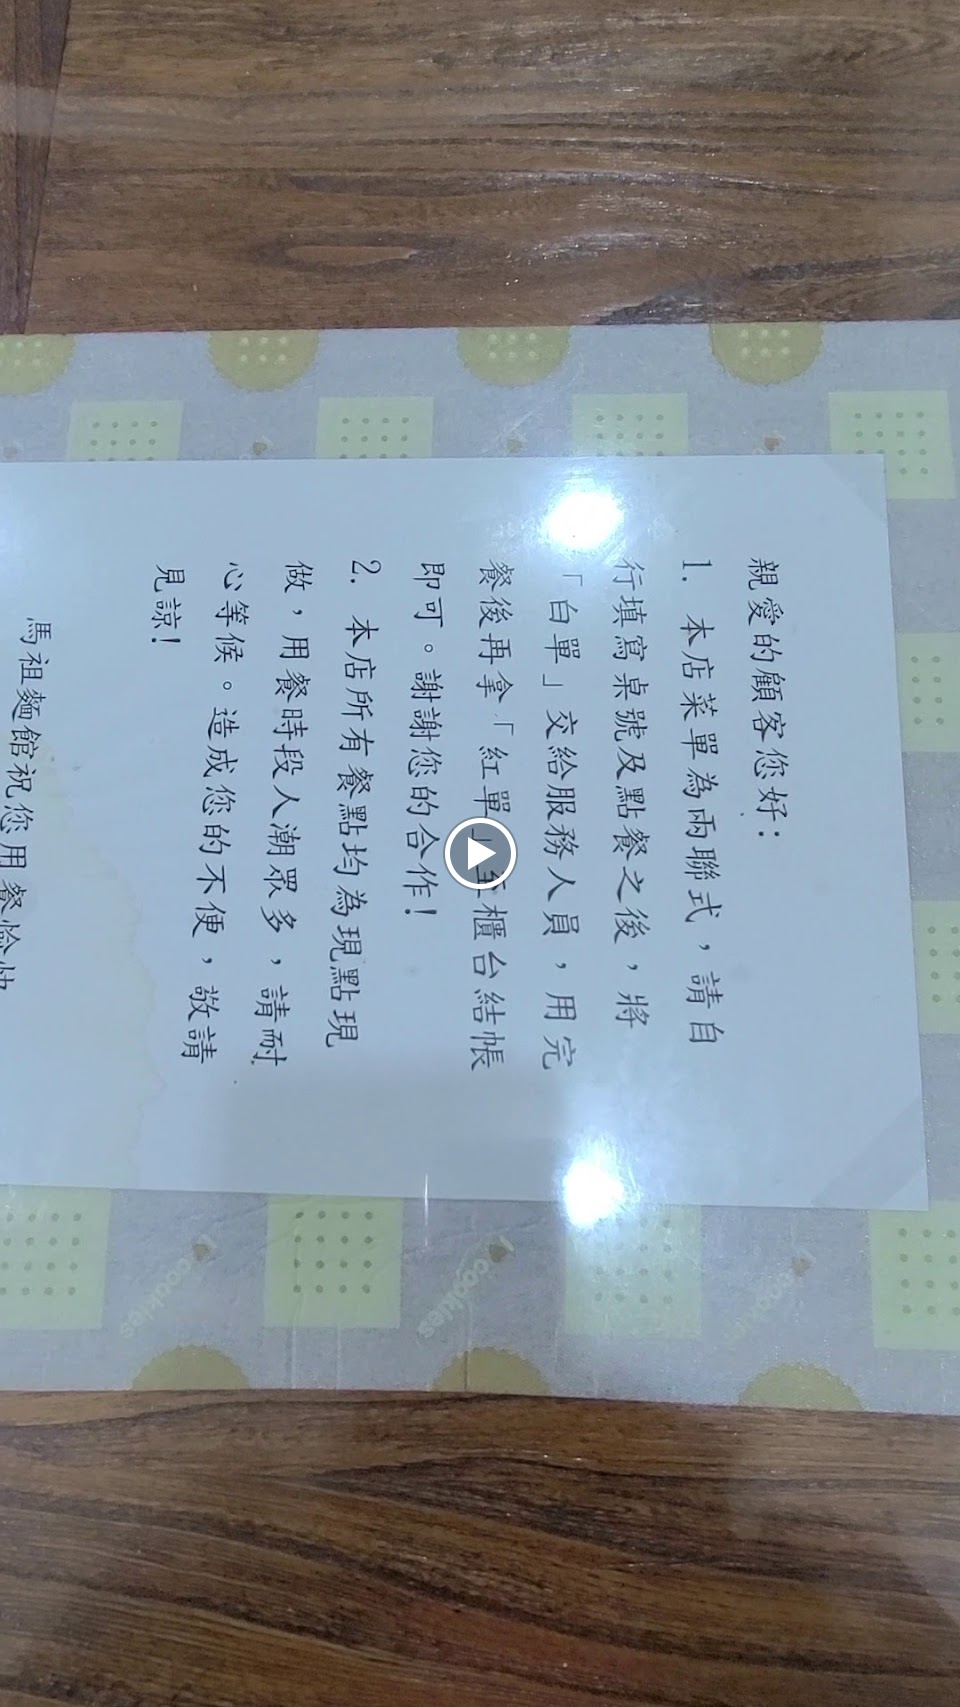 親愛的顧客您好：
1. 本店菜單為兩聯式，請自
行填寫桌號及點餐之後，將
「白單」交給服務人員，用完
餐後再拿「紅單」至櫃台結帳
即可。謝謝您的合作！
2. 本店所有餐點均為現點現
做，用餐時段人潮眾多，請耐
心等候。造成您的不便，敬請
見諒！
馬祖麵館祝您用餐愉快
cookies
cookies
cookies